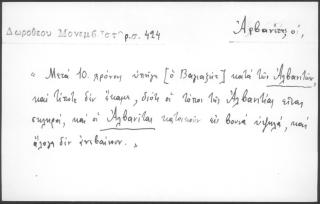 Δωροθέου Μονεμβ. Ἱστ. σ. 424
Ἀρβανίτης οἱ,
« Μετά 10. χρόνους ὑπῆγε [ὁ Βαγιαζίτ] κατά τῆς Ἀλβανίτων,
καί τίποτε δέν ἔκαμε, διότι οἱ τόποι τῆς Ἀλβανιτίας εἶναι
σκληροί, καί οἱ Ἀλβανῖται κατοικοῦν εἰς βουνά ὑψηλά, καί
ἄλογα δέν ἐμβαίνουν. »